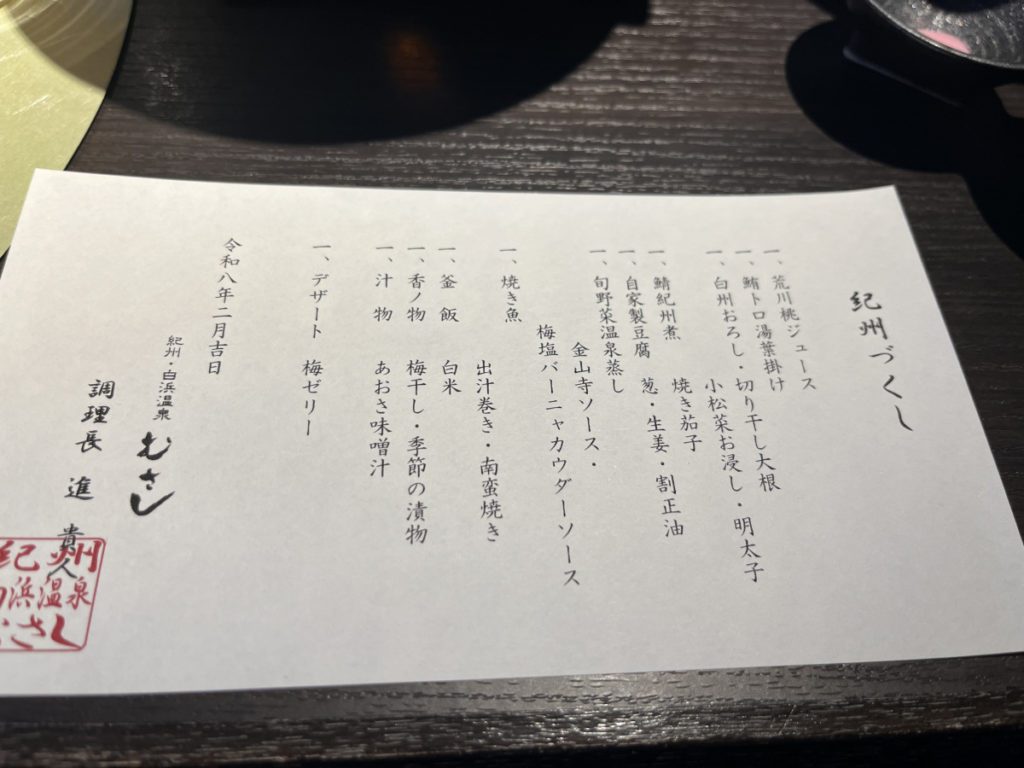 紀州づくし
一、荒川桃ジュース
一、鮪トロ湯葉掛け
一、白州おろし・切り干し大根
小松菜お浸し・明太子
一、鯖紀州煮　焼き茄子
一、自家製豆腐　葱・生姜・割正油
一、旬野菜温泉蒸し
金山寺ソース・
梅塩バーニャカウダーソース
一、焼き魚
出汁巻き・南蛮焼き
一、釜　飯　白米
一、香ノ物　梅干し・季節の漬物
一、汁　物　あおさ味噌汁
一、デザート　梅ゼリー
令和八年二月吉日
紀州・白浜温泉　むさし
調理長　進　貴人
紀州
浜温泉
さし